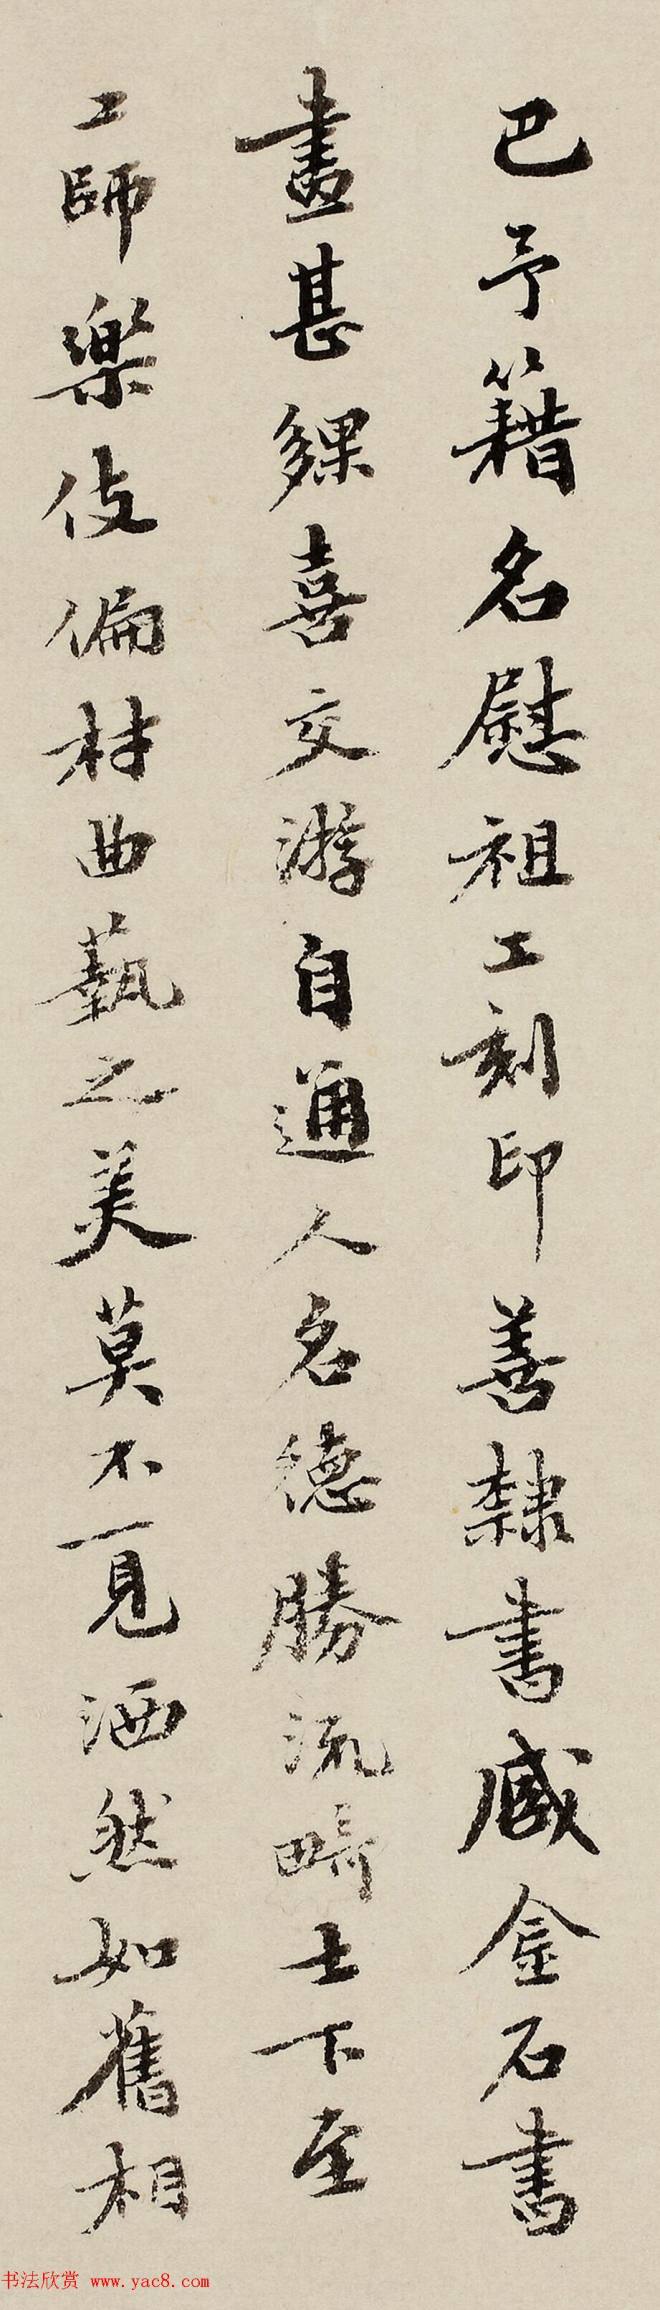 巴予籍名慰祖工刻印善隸書臧金石書
畫甚夥喜交游自通人名德勝流畸士下至
工師樂伎偏材曲藝之美莫不覓洒然如舊相
书法欣赏 www.yac8.com